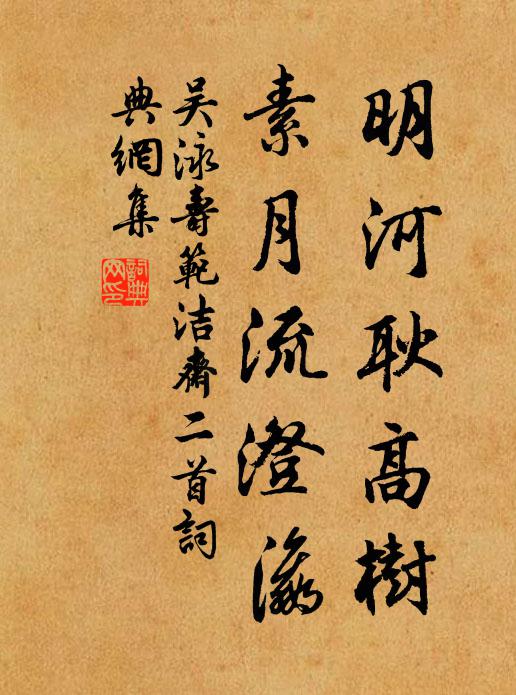 明河耿高樹
素月流澄瀛
吴泳壽範洁齋二首詞
典網集
詞典
网印